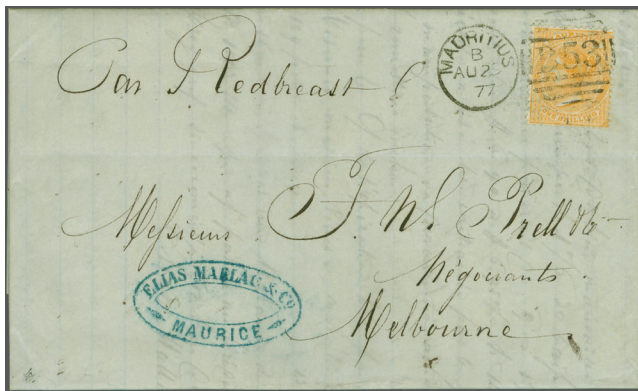 Par Redbreast
MAURITIUS
B
AU 25
77
B53
Messieurs F. W. Prell & Co
Négociants
Melbourne
ELIAS MALLAC & Co
MAURICE